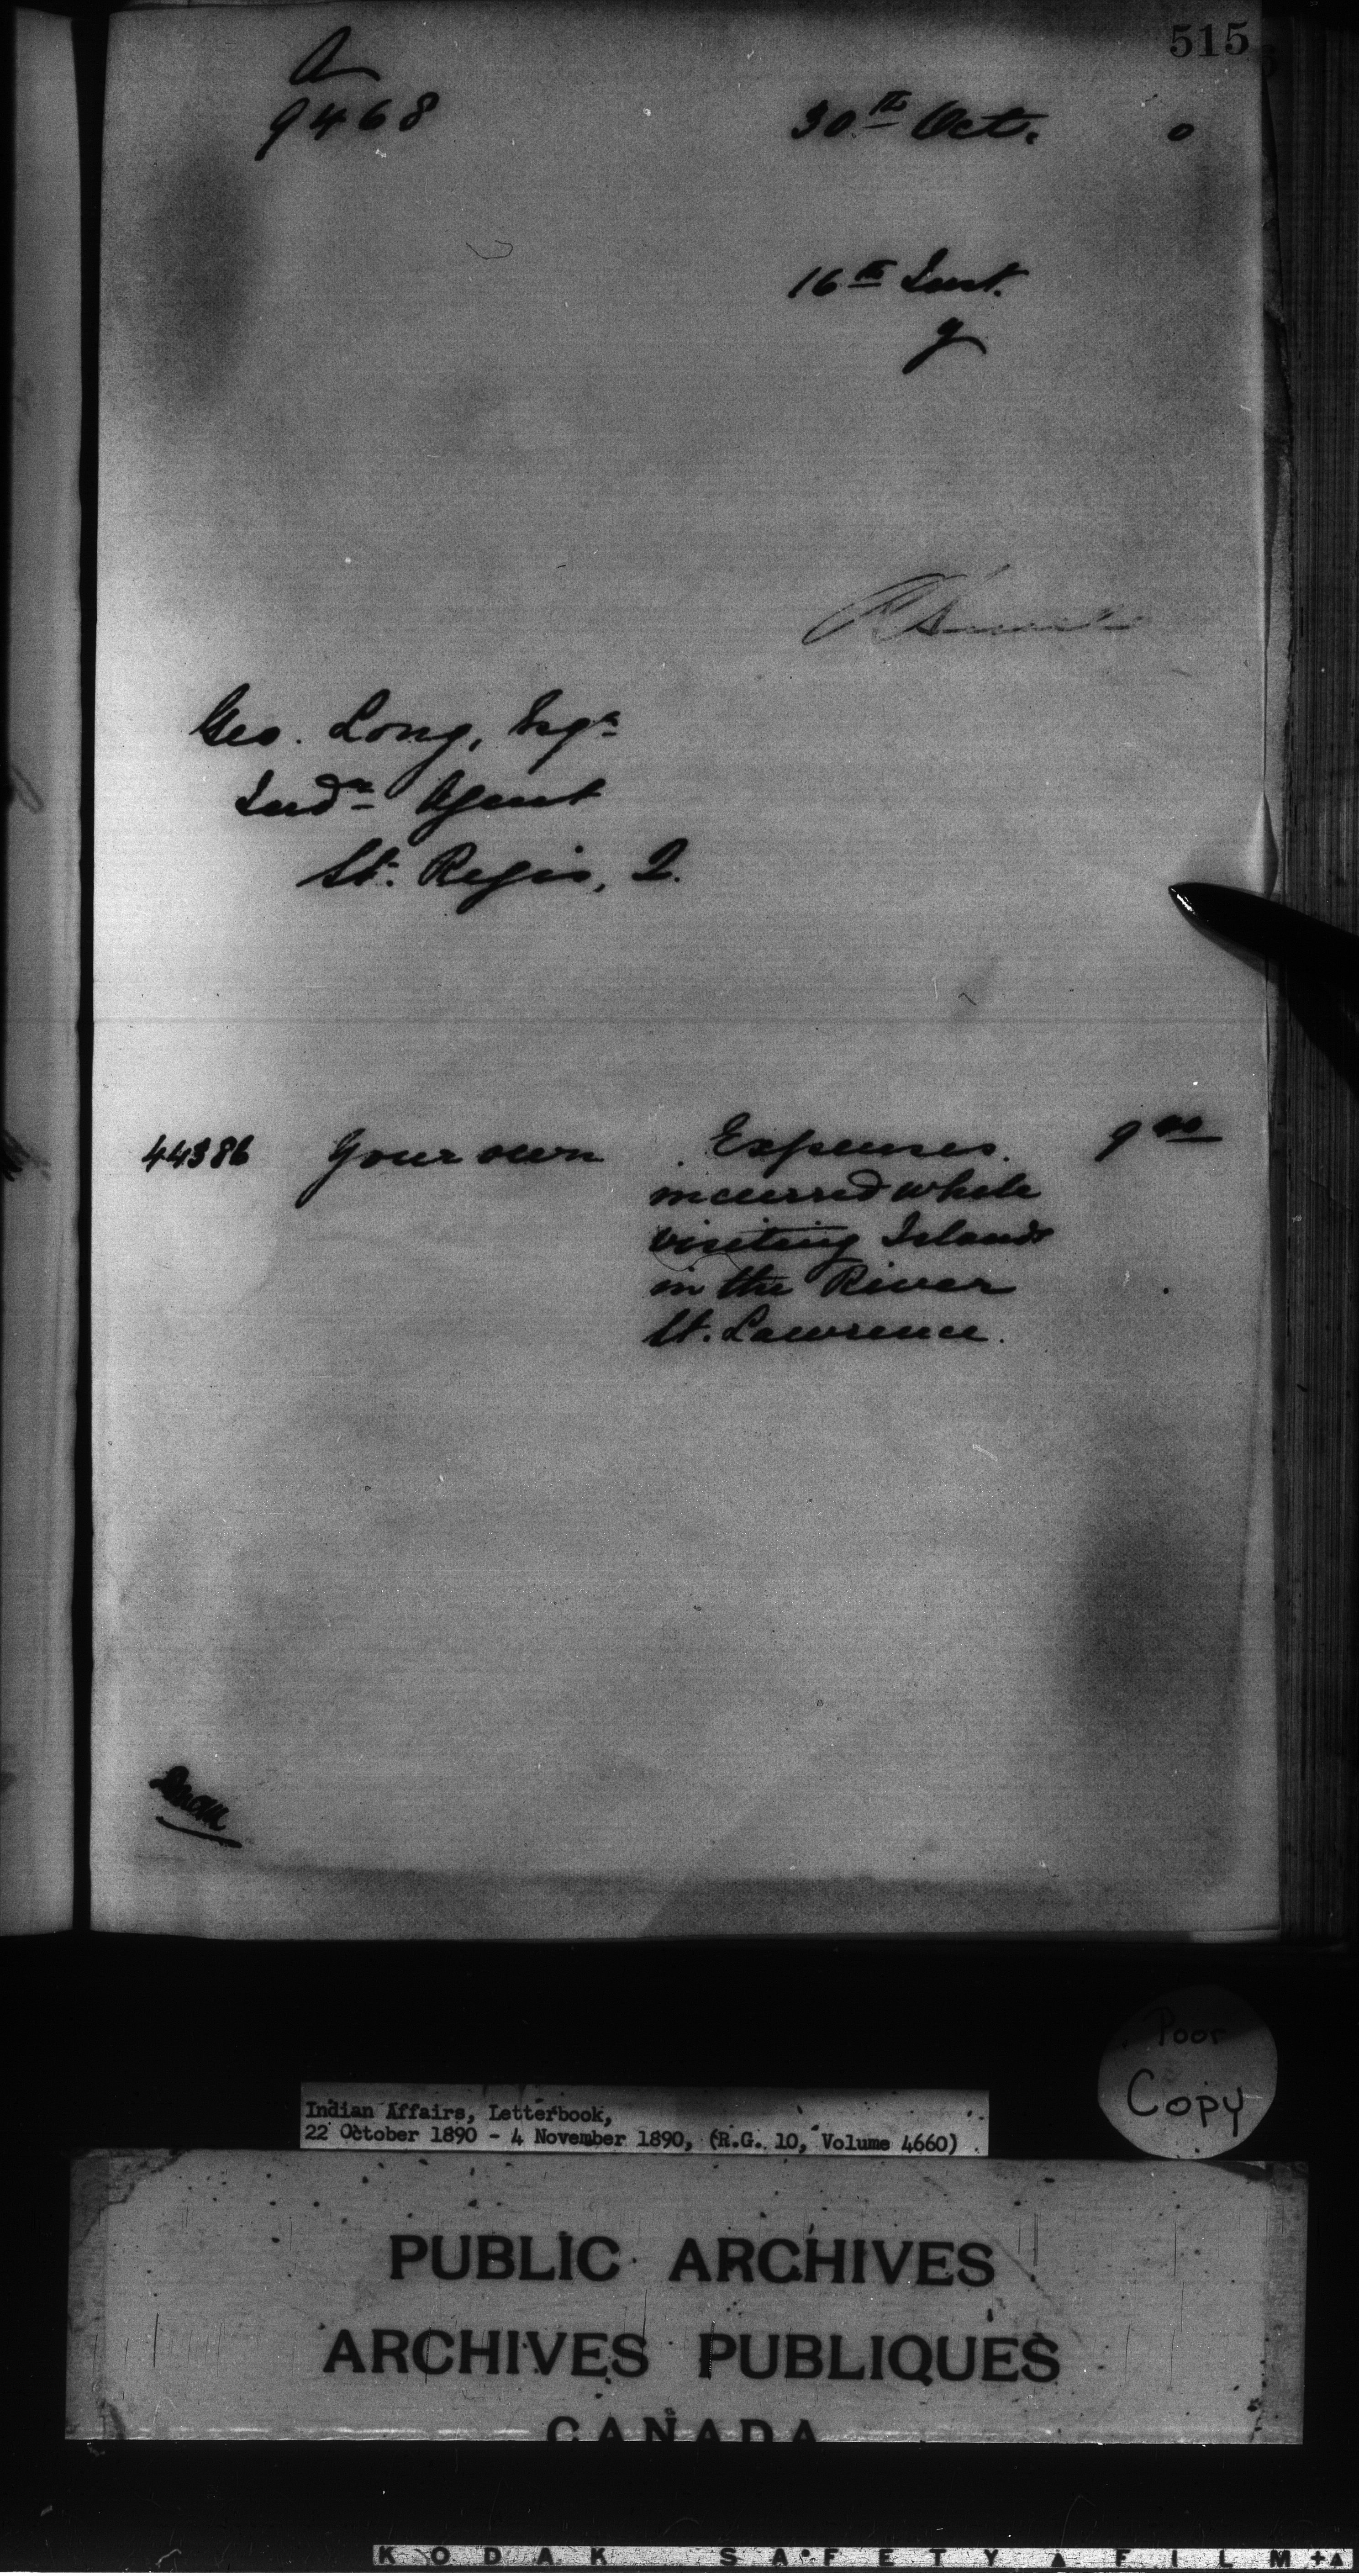 515
A
9468
30th Oct. 0
16th Inst.
y
Geo. Long, Esqr
Indn Agent
St. Regis, Q.
44386 Your own Expenses 9 00
incurred while
visiting Islands
in the River
St. Lawrence.
Poor
Copy
Indian Affairs, Letterbook,
22 October 1890 - 4 November 1890, (R.G. 10, Volume 4660)
PUBLIC ARCHIVES
ARCHIVES PUBLIQUES
CANADA
KODAK SAFETY FILM